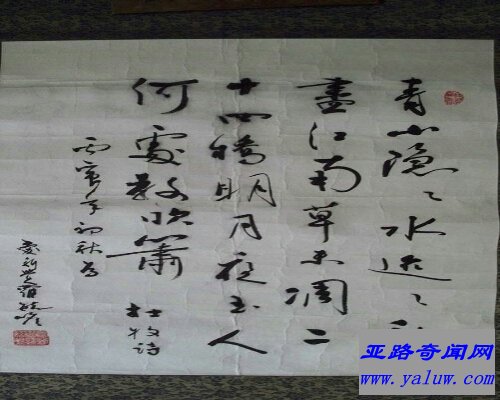 青山隐々水迢々秋
盡江南草未凋二
十四橋明月夜玉人
何處教吹簫 杜牧诗
丙寅年初秋
愛新覺羅毓
亚路奇闻网
www.yaluw.com